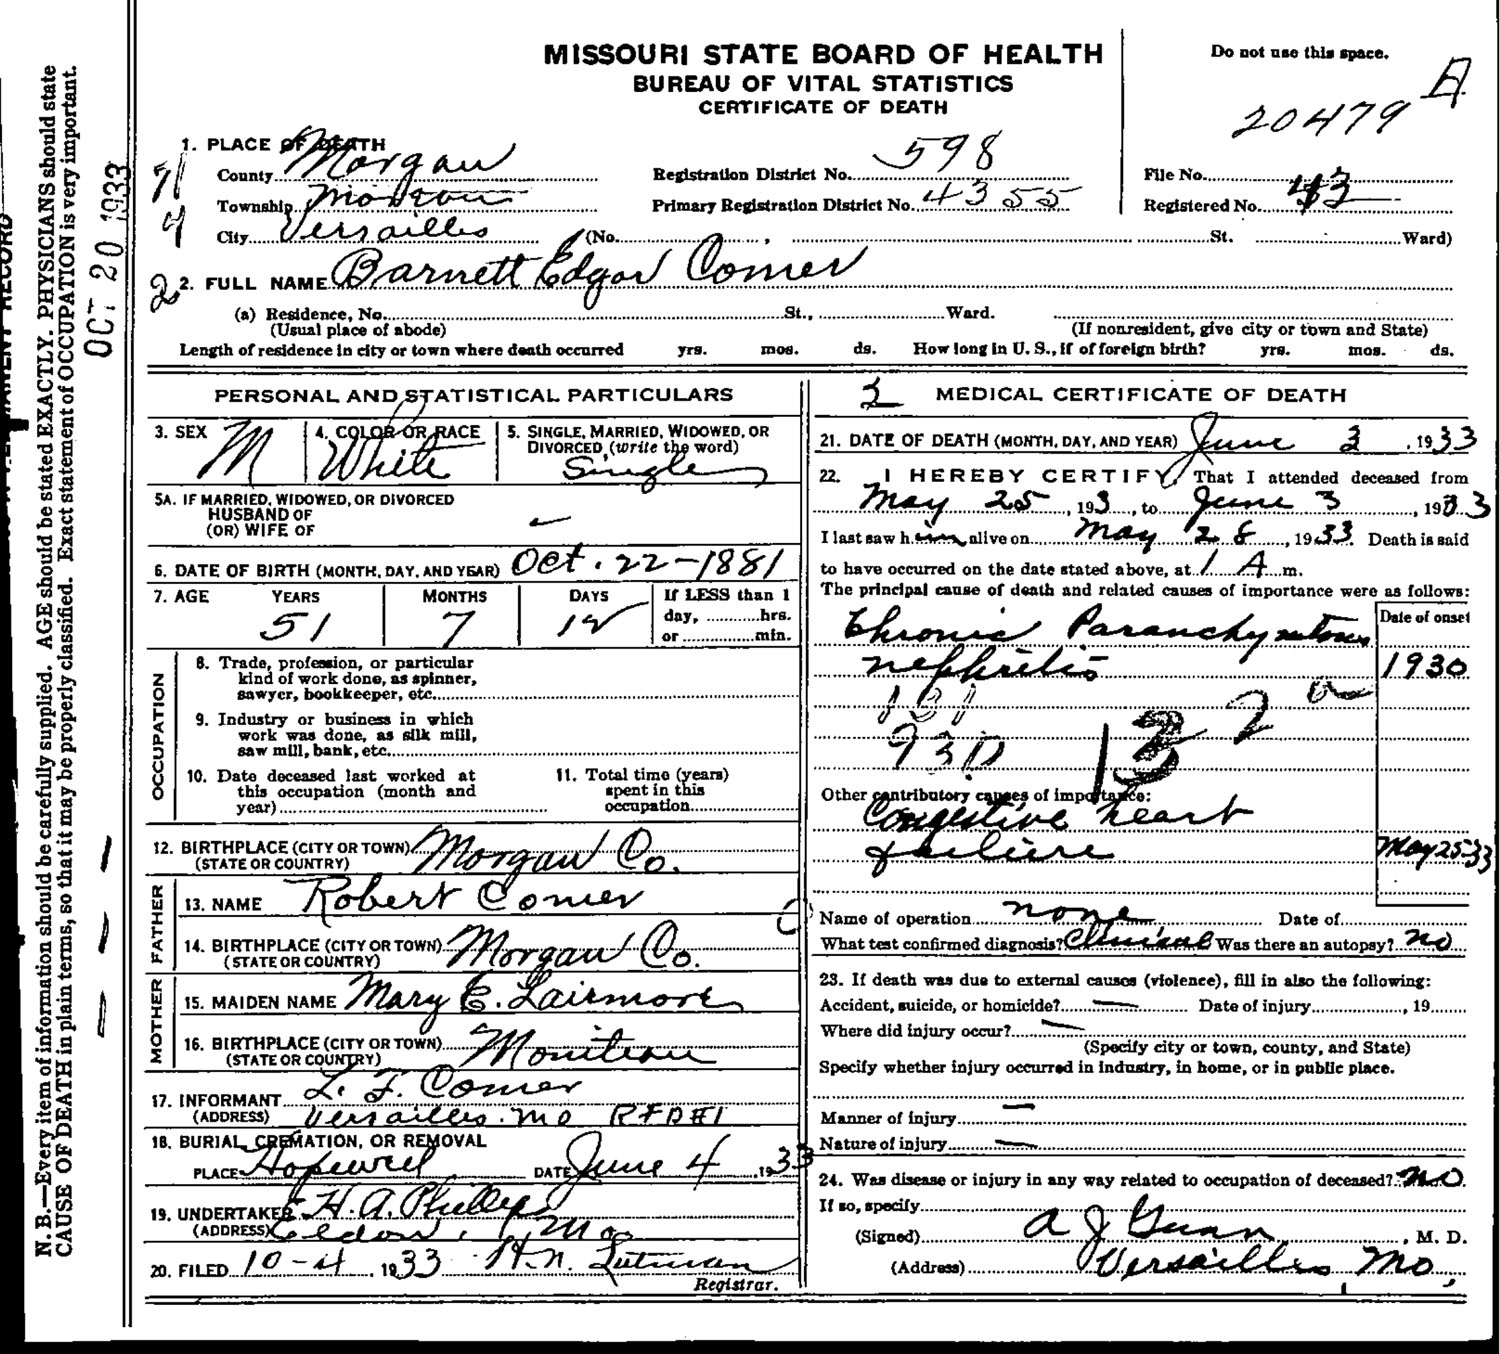 MISSOURI STATE BOARD OF HEALTH
BUREAU OF VITAL STATISTICS
CERTIFICATE OF DEATH
Do not use this space.
20479 A
1. PLACE OF DEATH
County Morgan
Township Moreau
City Versailles (No. , St. Ward)
Registration District No. 598
Primary Registration District No. 4355
File No.
Registered No. 43
2. FULL NAME Barnett Edgar Comer
(a) Residence, No. St., Ward.
(Usual place of abode) (If nonresident, give city or town and State)
Length of residence in city or town where death occurred yrs. mos. ds. How long in U. S., if of foreign birth? yrs. mos. ds.
PERSONAL AND STATISTICAL PARTICULARS
3. SEX M
4. COLOR OR RACE White
5. SINGLE, MARRIED, WIDOWED, OR
DIVORCED (write the word)
Single
5A. IF MARRIED, WIDOWED, OR DIVORCED
HUSBAND OF
(OR) WIFE OF
6. DATE OF BIRTH (MONTH, DAY, AND YEAR) Oct. 22-1881
7. AGE YEARS MONTHS DAYS If LESS than 1
day, hrs.
or min.
51 7 12
OCCUPATION
8. Trade, profession, or particular
kind of work done, as spinner,
sawyer, bookkeeper, etc.
9. Industry or business in which
work was done, as silk mill,
saw mill, bank, etc.
10. Date deceased last worked at
this occupation (month and
year)
11. Total time (years)
spent in this
occupation
12. BIRTHPLACE (CITY OR TOWN) Morgan Co.
(STATE OR COUNTRY)
FATHER
13. NAME Robert Comer
14. BIRTHPLACE (CITY OR TOWN) Morgan Co.
(STATE OR COUNTRY)
MOTHER
15. MAIDEN NAME Mary E. Lairmore
16. BIRTHPLACE (CITY OR TOWN) Moniteau
(STATE OR COUNTRY)
17. INFORMANT L. F. Comer
(ADDRESS) Versailles. Mo RFD#1
18. BURIAL, CREMATION, OR REMOVAL
PLACE Hopewell DATE June 4 1933
19. UNDERTAKER H. A. Phillips
(ADDRESS) Eldon, Mo
20. FILED 10-4 1933 H. N. Lutman
Registrar.
2 MEDICAL CERTIFICATE OF DEATH
21. DATE OF DEATH (MONTH, DAY, AND YEAR) June 3, 1933
22. I HEREBY CERTIFY, That I attended deceased from
May 25, 193, to June 3, 1933
I last saw him alive on May 28, 1933. Death is said
to have occurred on the date stated above, at 1 A m.
The principal cause of death and related causes of importance were as follows:
Date of onset
Chronic Paranchymatous
nephritis 1930
131
930
132 a
Other contributory causes of importance:
Congestive heart
failure May 25-33
Name of operation none Date of
What test confirmed diagnosis? Clinical Was there an autopsy? no
23. If death was due to external causes (violence), fill in also the following:
Accident, suicide, or homicide? Date of injury, 19
Where did injury occur?
(Specify city or town, county, and State)
Specify whether injury occurred in industry, in home, or in public place.
Manner of injury
Nature of injury
24. Was disease or injury in any way related to occupation of deceased? no.
If so, specify
(Signed) A J Gunn, M. D.
(Address) Versailles, Mo.
N. B.—Every item of information should be carefully supplied. AGE should be stated EXACTLY. PHYSICIANS should state
CAUSE OF DEATH in plain terms, so that it may be properly classified. Exact statement of OCCUPATION is very important.
OCT 20 1933